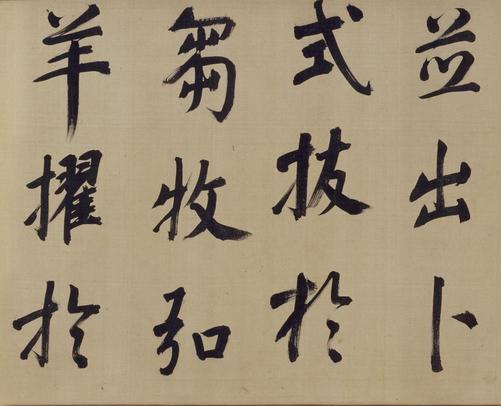 並出卜
式拔於
芻牧弘
羊擢於